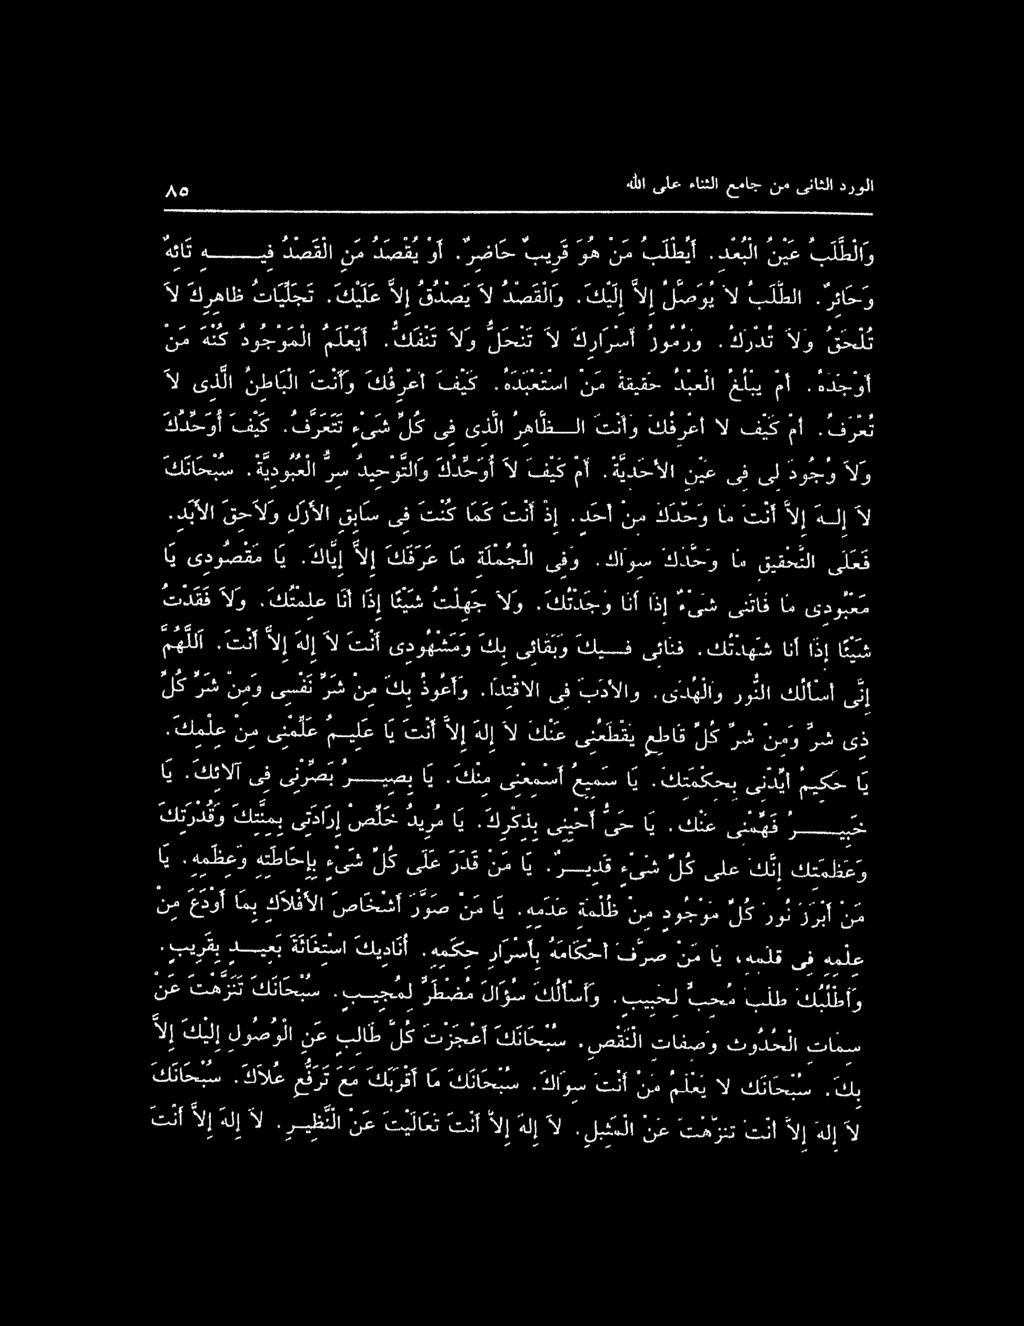 الورد الثانى من جامع الثناء على الله
٨٥
وَالْطَّلَبُ عَيْنُ الْبُعْدِ. أَيُطْلَبُ مَنْ هُوَ قَرِيبٌ حَاضِرٌ. أَوْ يُقْصَدُ مَنِ الْقَصْدُ فِيــهِ تَائِهٌ
وَحَائِرٌ. الطَّلَبُ لاَ يُوَصِّلُ إِلاَّ إِلَيْكَ. وَالْقَصْدُ لاَ يَصْدُقُ إِلاَّ عَلَيْكَ. تَجَلِّيَاتُ ظَاهِرِكَ لاَ
تُلْحَقُ وَلاَ تُدْرَكُ. وَرُمُوزُ أَسْرَارِكَ لاَ تَنْحَلُّ وَلاَ تَنْفَكُّ. أَيَعْلَمُ الْمَوْجُودُ كُنْهَ مَنْ
أَوْجَدَهُ. أَمْ يَبْلُغُ الْعَبْدُ حَقِيقَةَ مَنْ اسْتَعْبَدَهُ. كَيْفَ أَعْرِفُكَ وَأَنْتَ الْبَاطِنُ الَّذِى لاَ
تُعْرَفُ. أَمْ كَيْفَ لاَ أَعْرِفُكَ وَأَنْتَ الــظَّاهِرُ الَّذِى فِى كُلِّ شَىْءٍ تَتَعَرَّفُ. كَيْفَ أُوَحِّدُكَ
وَلاَ وُجُودَ لِى فِى عَيْنِ الأَحَدِيَّةِ. أَمْ كَيْفَ لاَ أُوَحِّدُكَ وَالتَّوْحِيدُ سِرُّ الْعُبُودِيَّةِ. سُبْحَانَكَ
لاَ إِلــهَ إِلاَّ أَنْتَ مَا وَحَّدَكَ مِنْ أَحَدٍ. إِذْ أَنْتَ كَمَا كُنْتَ فِى سَابِقِ الأَزَلِ وَلاَحِقِ الأَبَدِ.
فَعَلَى التَّحْقِيقِ مَا وَحَّدَكَ سِوَاكَ. وَفِى الْجُمْلَةِ مَا عَرَفَكَ إِلاَّ إِيَّاكَ. يَا مَقْصُودِى يَا
مَعْبُودِى مَا فَاتَنِى شَىْءٌ إِذَا أَنَا وَجَدْتُكَ. وَلاَ جَهِلْتُ شَيْئًا إِذَا أَنَا عَلِمْتُكَ. وَلاَ فَقَدْتُ
شَيْئًا إِذَا أَنَا شَهِدْتُكَ. فَنَائِى فــيكَ وَبَقَائِى بِكَ وَمَشْهُودِى أَنْتَ لاَ إِلهَ إِلاَّ أَنْتَ. اَللَّهُمَّ
إِنِّى أَسْأَلُكَ النُّورَ وَالْهُدَى. وَالأَدَبَ فِى الاقْتِدَا. وَأَعُوذُ بِكَ مِنْ شَرِّ نَفْسِى وَمِنْ شَرِّ كُلِّ
ذِى شَرٍّ وَمِنْ شَرِّ كُلِّ قَاطِعٍ يَقْطَعُنِى عَنْكَ لاَ إِلهَ إِلاَّ أَنْتَ يَا عَلِيــمُ عَلِّمْنِى مِنْ عِلْمِكَ.
يَا حَكِيمُ أَيِّدْنِى بِحِكْمَتِكَ. يَا سَمِيعُ أَسْمِعْنِى مِنْكَ. يَا بَصِيــرُ بَصِّرْنِى فِى آلاَئِكَ. يَا
خَبِيــرُ فَهِّمْنِى عَنْكَ. يَا حَىُّ أَحْيِنِى بِذِكْرِكَ. يَا مُرِيدُ خَلِّصْ إِرَادَتِى بِمِنَّتِكَ وَقُدْرَتِكَ
وَعَظَمَتِكَ إِنَّكَ عَلَى كُلِّ شَىْءٍ قَدِيــرٌ. يَا مَنْ قَدَرَ عَلَى كُلِّ شَىْءٍ بِإِحَاطَتِهِ وَعِظَمِهِ. يَا
مَنْ أَبْرَزَ نُورَ كُلِّ مَوْجُودٍ مِنْ ظُلْمَةِ عَدَمِهِ. يَا مَنْ صَوَّرَ أَشْخَاصَ الأَفْلاَكِ بِمَا أَوْدَعَ مِنْ
عِلْمِهِ فِى قَلَمِهِ، يَا مَنْ صَرَّفَ أَحْكَامَهُ بِأَسْرَارِ حِكَمِهِ. أُنَادِيكَ اسْتِغَاثَةَ بَعِيــدٍ بِقَرِيبٍ.
وَأَطْلُبُكَ طَلَبَ مُحِبٍّ لِحَبِيبٍ. وَأَسْأَلُكَ سُؤَالَ مُضْطَرٍّ لِمُجِيــبٍ. سُبْحَانَكَ تَنَزَّهْتَ عَنْ
سِمَاتِ الْحُدُوثِ وَصِفَاتِ الْنَّقْصِ. سُبْحَانَكَ أَعْجَزْتَ كُلَّ طَالِبٍ عَنِ الْوُصُولِ إِلَيْكَ إِلاَّ
بِكَ. سُبْحَانَكَ لاَ يَعْلَمُ مَنْ أَنْتَ سِوَاكَ. سُبْحَانَكَ مَا أَقْرَبَكَ مَعَ تَرَفُّعِ عُلاَكَ. سُبْحَانَكَ
لاَ إِلهَ إِلاَّ أَنْتَ تَنَزَّهْتَ عَنْ الْمَثِيلِ. لاَ إِلهَ إِلاَّ أَنْتَ تَعَالَيْتَ عَنْ الْنَّظِيــرِ. لاَ إِلهَ إِلاَّ أَنْتَ